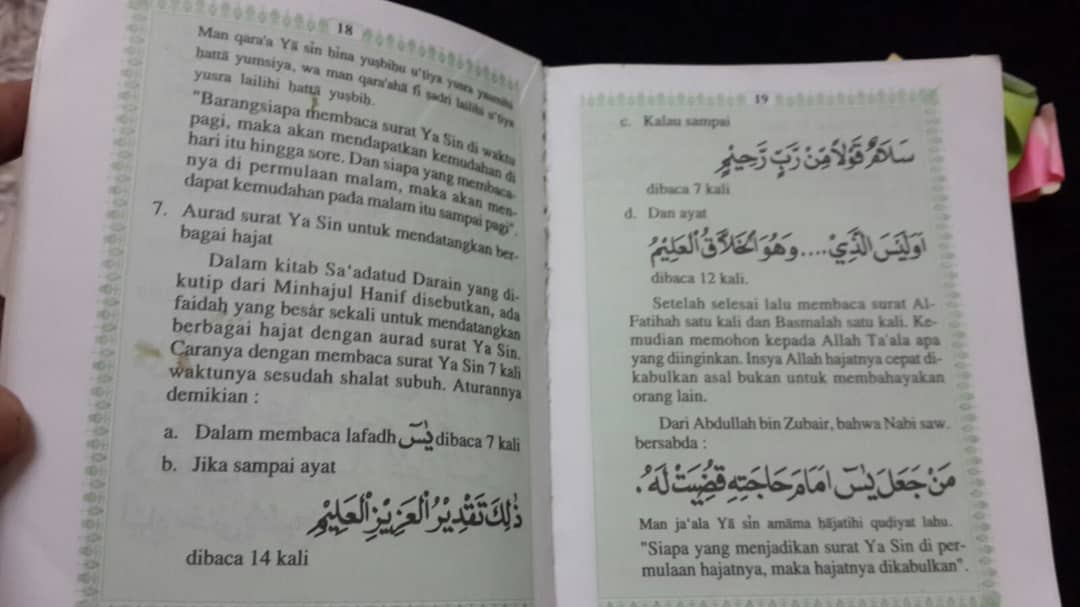 18
Man qara'a Yā sīn ḥīna yuṣbiḥu u'ṭiya yusra yaumihi
ḥattā yumsiya, wa man qara'ahā fī ṣadri lailihi u'ṭiya
yusra lailihi ḥattā yuṣbiḥ.
"Barangsiapa membaca surat Ya Sin di waktu
pagi, maka akan mendapatkan kemudahan di
hari itu hingga sore. Dan siapa yang membaca-
nya di permulaan malam, maka akan men-
dapat kemudahan pada malam itu sampai pagi".
7. Aurad surat Ya Sin untuk mendatangkan ber-
bagai hajat
Dalam kitab Sa'adatud Darain yang di-
kutip dari Minhajul Hanif disebutkan, ada
faidah yang besar sekali untuk mendatangkan
berbagai hajat dengan aurad surat Ya Sin.
Caranya dengan membaca surat Ya Sin 7 kali
waktunya sesudah shalat subuh. Aturannya
demikian :
a. Dalam membaca lafadh يٰسٓ dibaca 7 kali
b. Jika sampai ayat
ذٰلِكَ تَقْدِيْرُ الْعَزِيْزِ الْعَلِيْمِ
dibaca 14 kali
19
c. Kalau sampai
سَلَامٌ قَوْلًا مِنْ رَبٍّ رَحِيْمٍ
dibaca 7 kali
d. Dan ayat
اَوَلَيْسَ الَّذِيْ.... وَهُوَ الْخَلَّاقُ الْعَلِيْمُ
dibaca 12 kali.
Setelah selesai lalu membaca surat Al-
Fatihah satu kali dan Basmalah satu kali. Ke-
mudian memohon kepada Allah Ta'ala apa
yang diinginkan. Insya Allah hajatnya cepat di-
kabulkan asal bukan untuk membahayakan
orang lain.
Dari Abdullah bin Zubair, bahwa Nabi saw.
bersabda :
مَنْ جَعَلَ يٰسٓ اَمَامَ حَاجَتِهِ قُضِيَتْ لَهُ.
Man ja'ala Yā sīn amāma ḥājatihi quḍiyat lahu.
"Siapa yang menjadikan surat Ya Sin di per-
mulaan hajatnya, maka hajatnya dikabulkan".